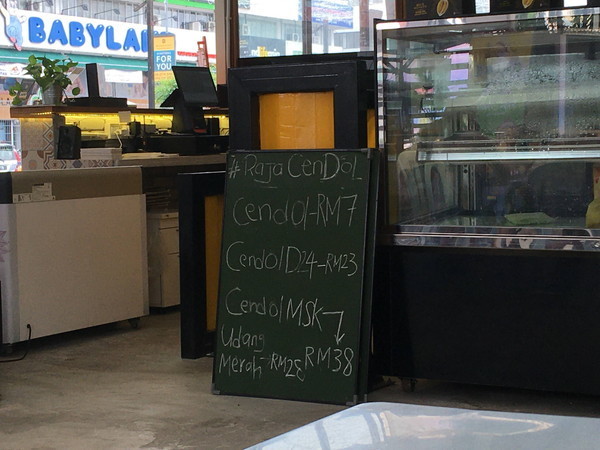 BABYLAN
FOR
YOU
#RajaCenDoL
Cendol-RM7
CendolD24-RM23
CendolMSK
Udang
Merah-RM28 RM38